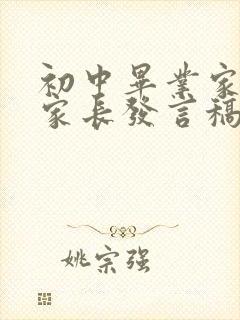 初中畢業家
家長發言稿
姚宗强